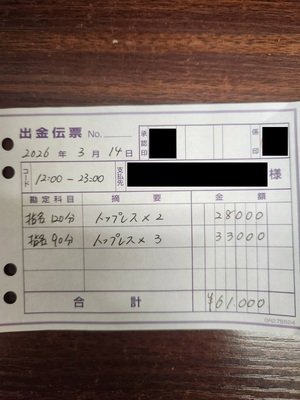 出金伝票 No.
承認印 係印
2026年 3月 14日
コード 12:00-23:00 支払先 様
勘定科目 摘要 金額
指名120分 トップレス×2 28000
指名90分 トップレス×3 33000
合計 ¥61.000